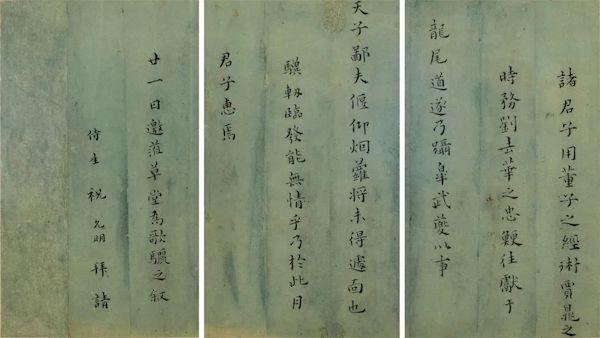 諸君子用董子之經術賈晁之
時務劉去華之忠鯁往獻于
龍尾道遂乃躡皐武夔以事
天子鄙夫偃仰烟蘿將未得遽面也
驥軔臨發能無情乎乃於此月
君子惠焉
廿一日邀蒞草堂為歌驪之叙
侍生 祝允明 拜請